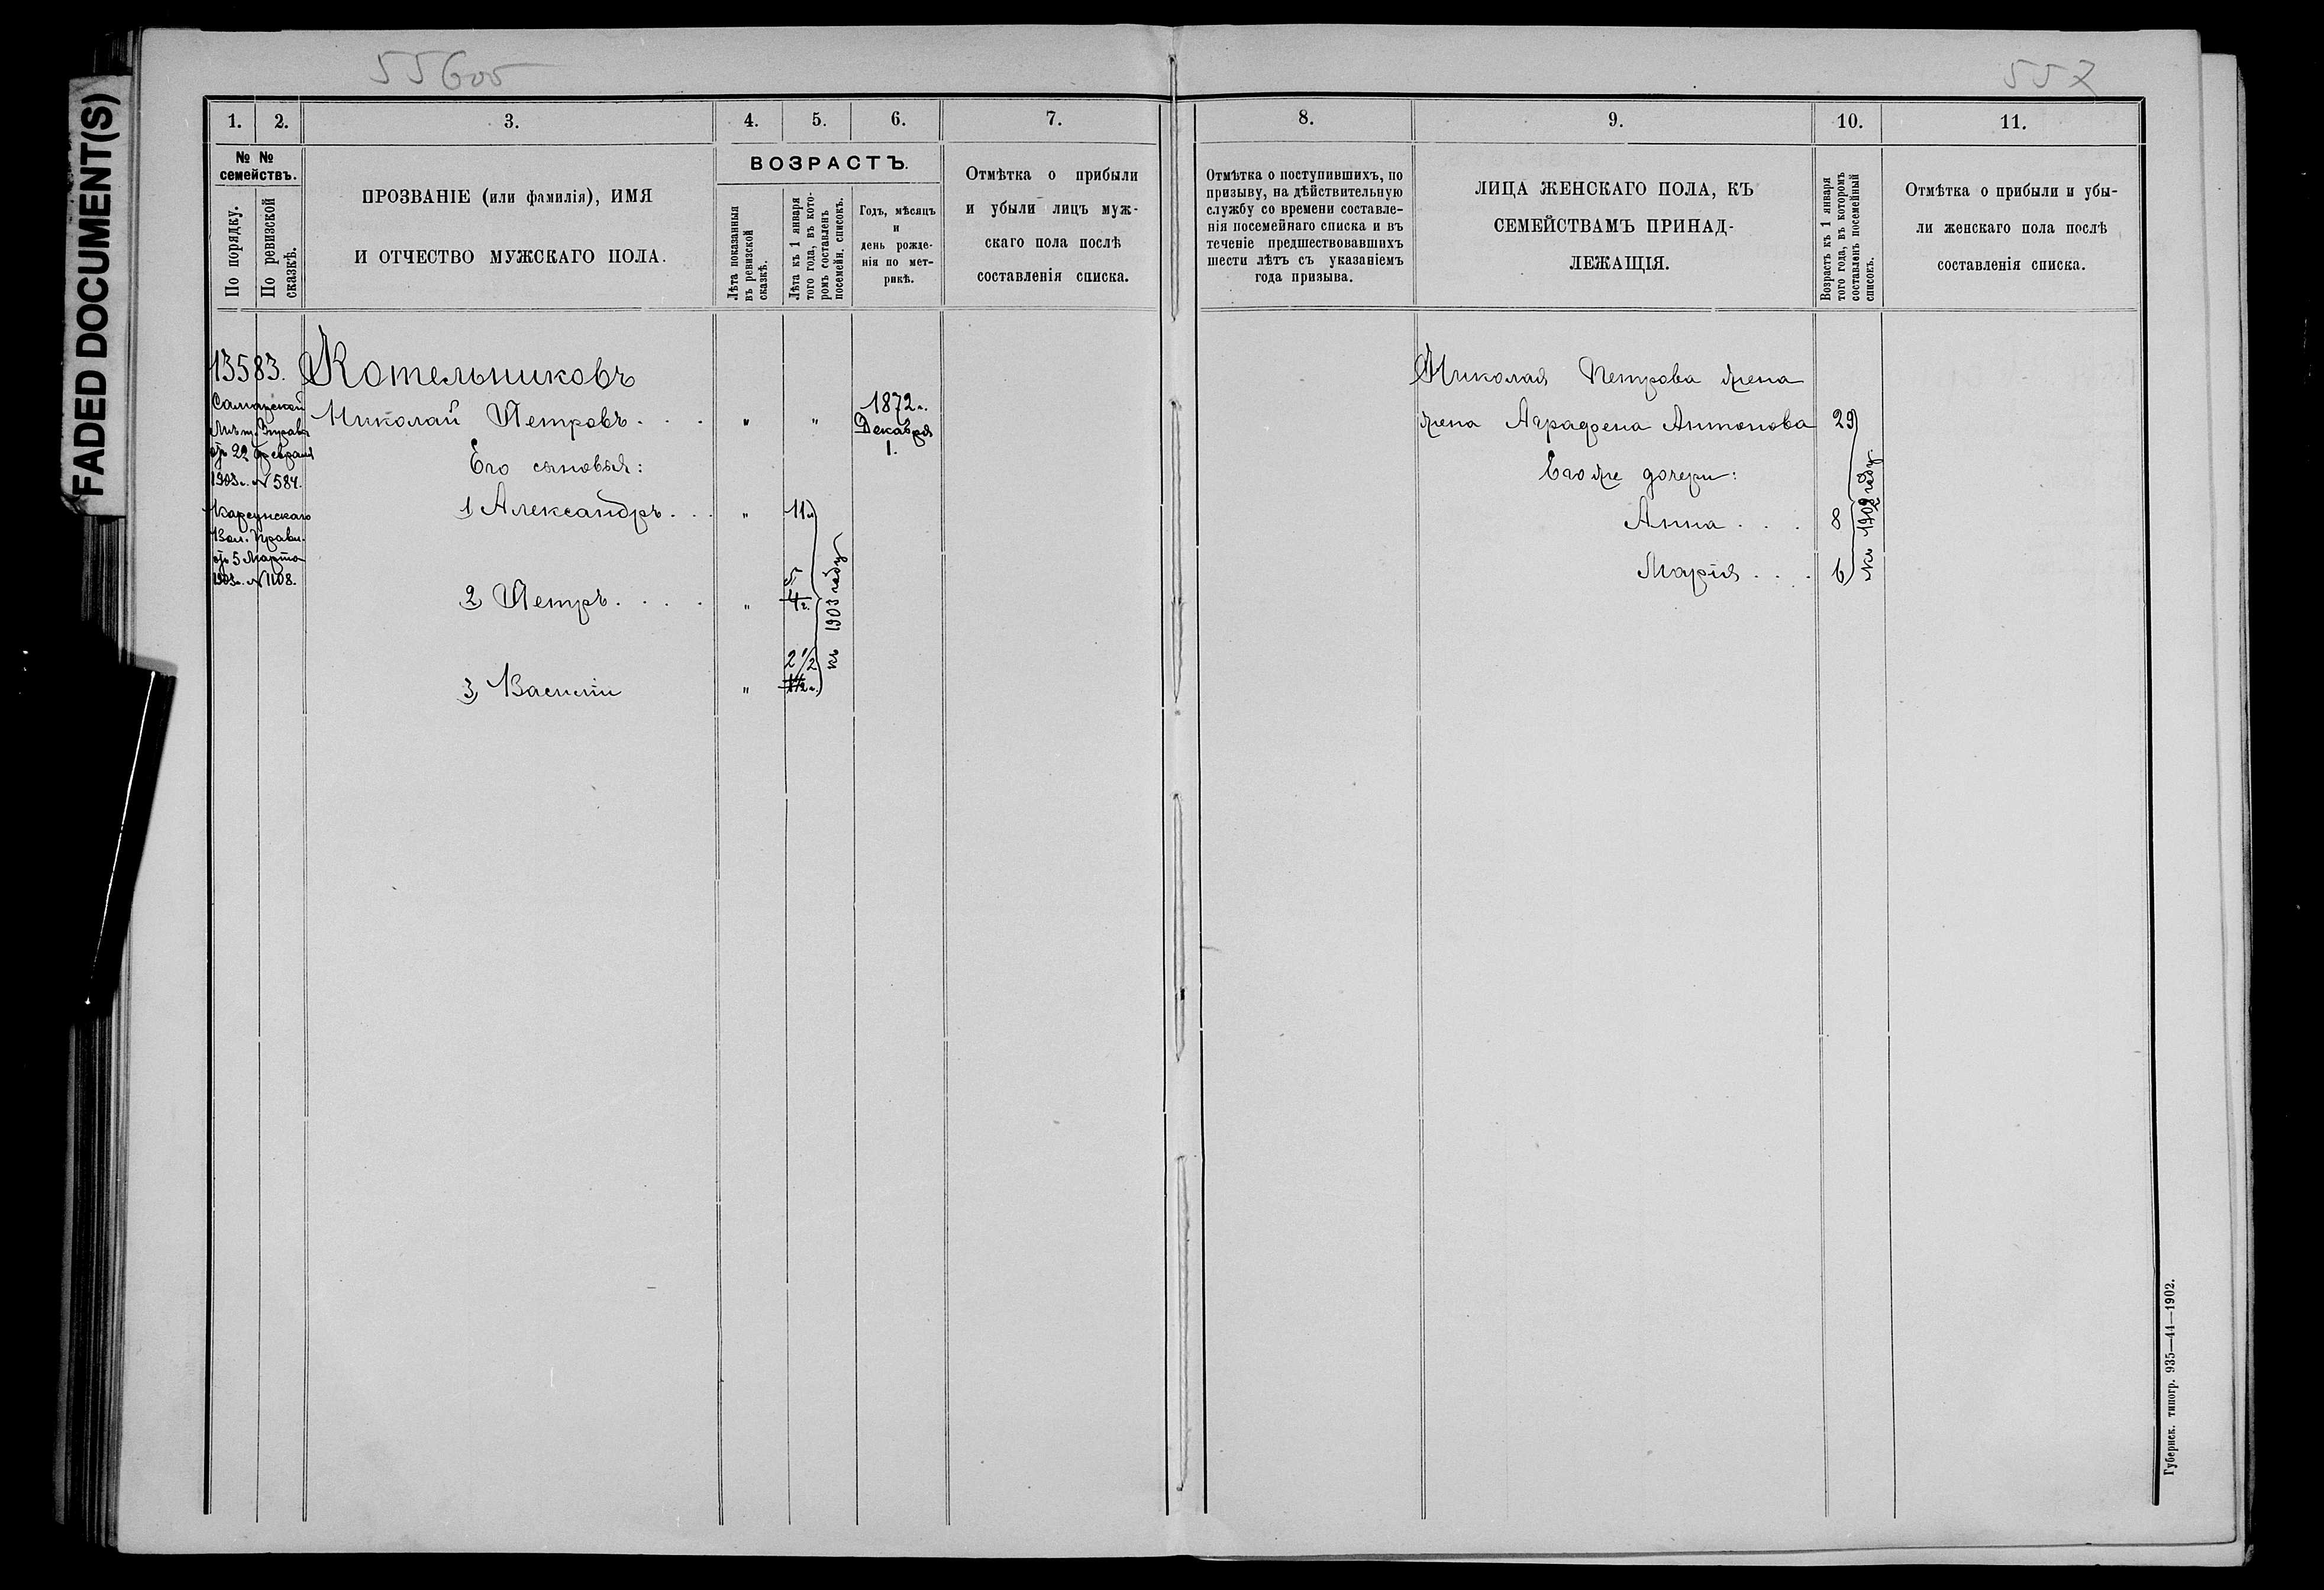 FADED DOCUMENT(S)
556 об
557
1. 2. 3. 4. 5. 6. 7.
№ №
семействъ.
По порядку.
По ревизской
сказкѣ.
ПРОЗВАНІЕ (или фамилія), ИМЯ
И ОТЧЕСТВО МУЖСКАГО ПОЛА.
ВОЗРАСТЪ.
Лѣта показанныя
въ ревизской
сказкѣ.
Лѣта къ 1 января
того года, въ кото-
ромъ составленъ
посемейн. списокъ.
Годъ, мѣсяцъ
и
день рожде-
нія по мет-
рикѣ.
Отмѣтка о прибыли
и убыли лицъ муж-
скаго пола послѣ
составленія списка.
13583.
Самарской
Мѣщ. Управы
отъ 22 февраля
1903 г. № 584.
Карсунскаго
Вол. Правл.
отъ 5 Марта
1903 г. № 1108.
Котельниковъ
Николай Петровъ . . . " " 1872 г.
Декабря
1.
Его сыновья:
1, Александръ . . . " 11 л
5
2, Петръ . . . . " 4 г.
2 1/2
3, Василій " 1 1/2 г.
къ 1903 году
8. 9. 10. 11.
Отмѣтка о поступившихъ, по
призыву, на дѣйствительную
службу со времени составле-
нія посемейнаго списка и въ
теченіе предшествовавшихъ
шести лѣтъ съ указаніемъ
года призыва.
ЛИЦА ЖЕНСКАГО ПОЛА, КЪ
СЕМЕЙСТВАМЪ ПРИНАД-
ЛЕЖАЩІЯ.
Возрастъ къ 1 января
того года, въ которомъ
составленъ посемейный
списокъ.
Отмѣтка о прибыли и убы-
ли женскаго пола послѣ
составленія списка.
Николая Петрова жена
жена Аграфена Антонова 29
Его же дочери:
Анна . . . 8
Марія . . . 6
къ 1902 году
Губернск. типогр. 935—44—1902.